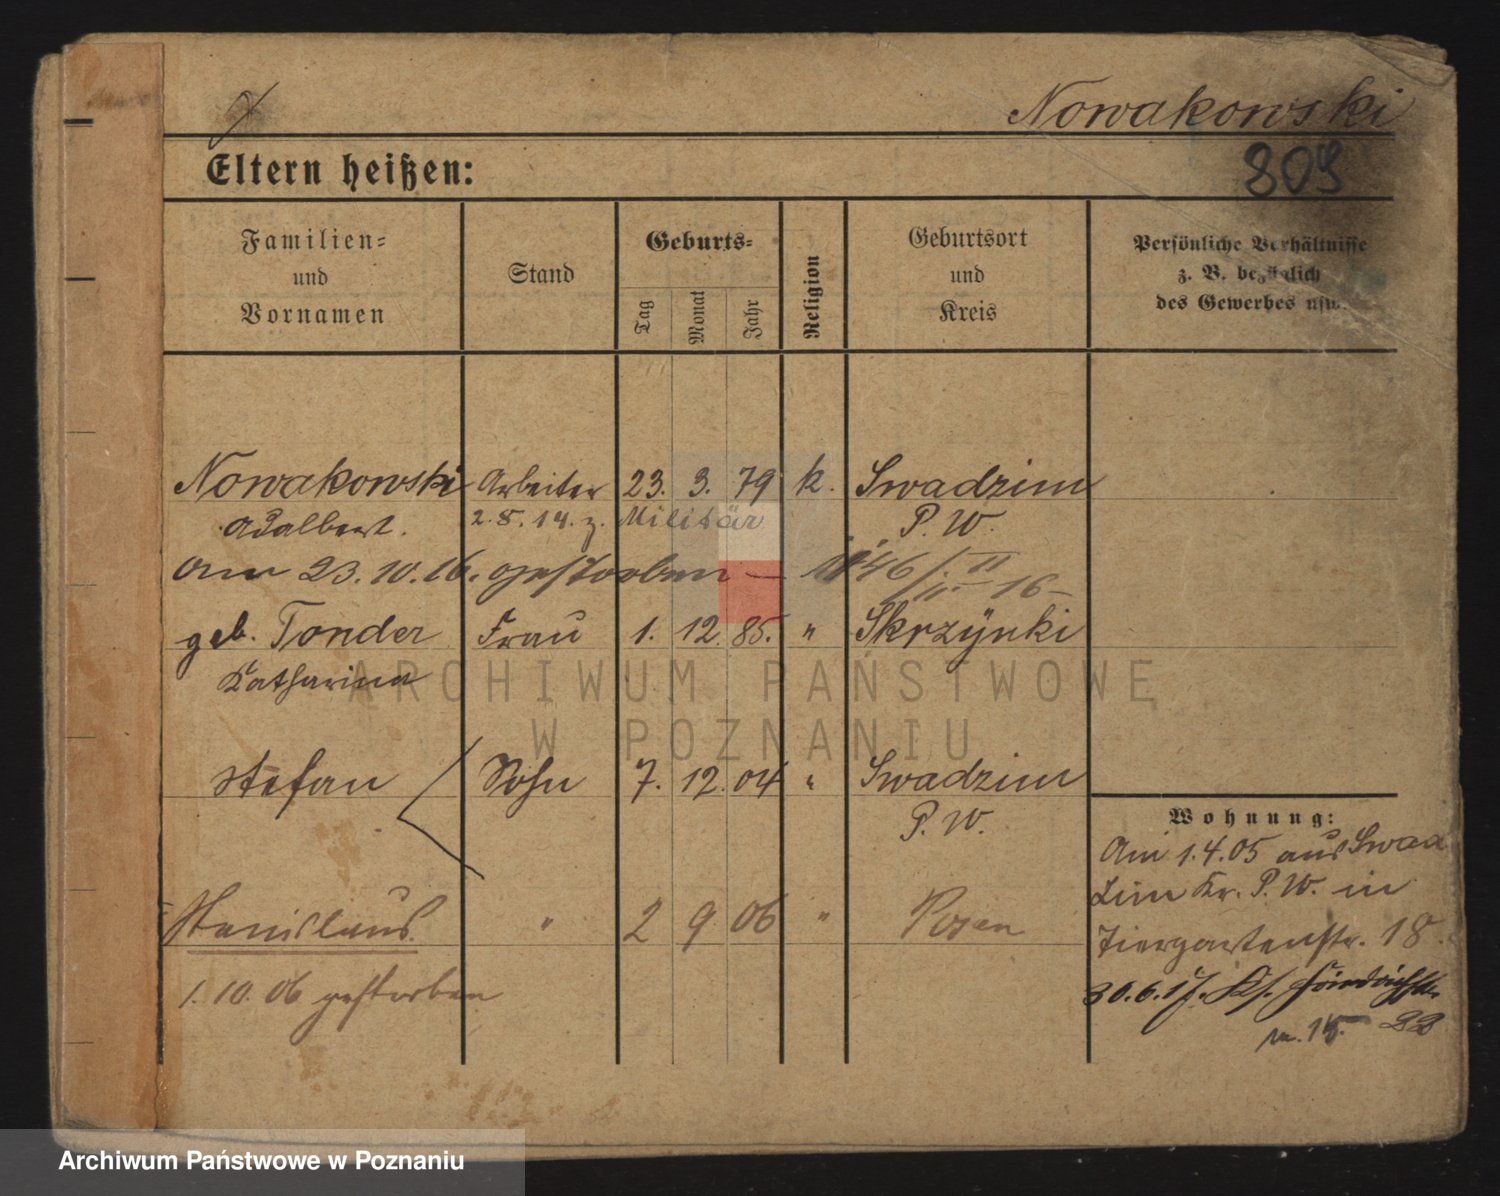 Nowakowski
Eltern heißen:
809
Familien-
und
Vornamen
Stand
Geburts-
Tag
Monat
Jahr
Religion
Geburtsort
und
Kreis
Persönliche Verhältnisse
z. B. bezüglich
des Gewerbes usw.
Nowakowski Arbeiter 23. 3. 79 k. Swadzim
Adalbert. 2.8.14. z. Militär P. W.
Am 23.10.16. gestorben —
geb. Tonder Frau 1. 12. 85. " Skrzynki
Katharina
ARCHIWUM PAŃSTWOWE
W POZNANIU
Stefan Sohn 7. 12. 04 " Swadzim
P. W.
Wohnung:
Am 1.4.05 aus Swad
zim Kr. P. W. in
Tiergartenstr. 18.
Stanislaus. " 2 9 06 " Posen
1. 10. 06 gestorben
30.6.17.
22
Archiwum Państwowe w Poznaniu